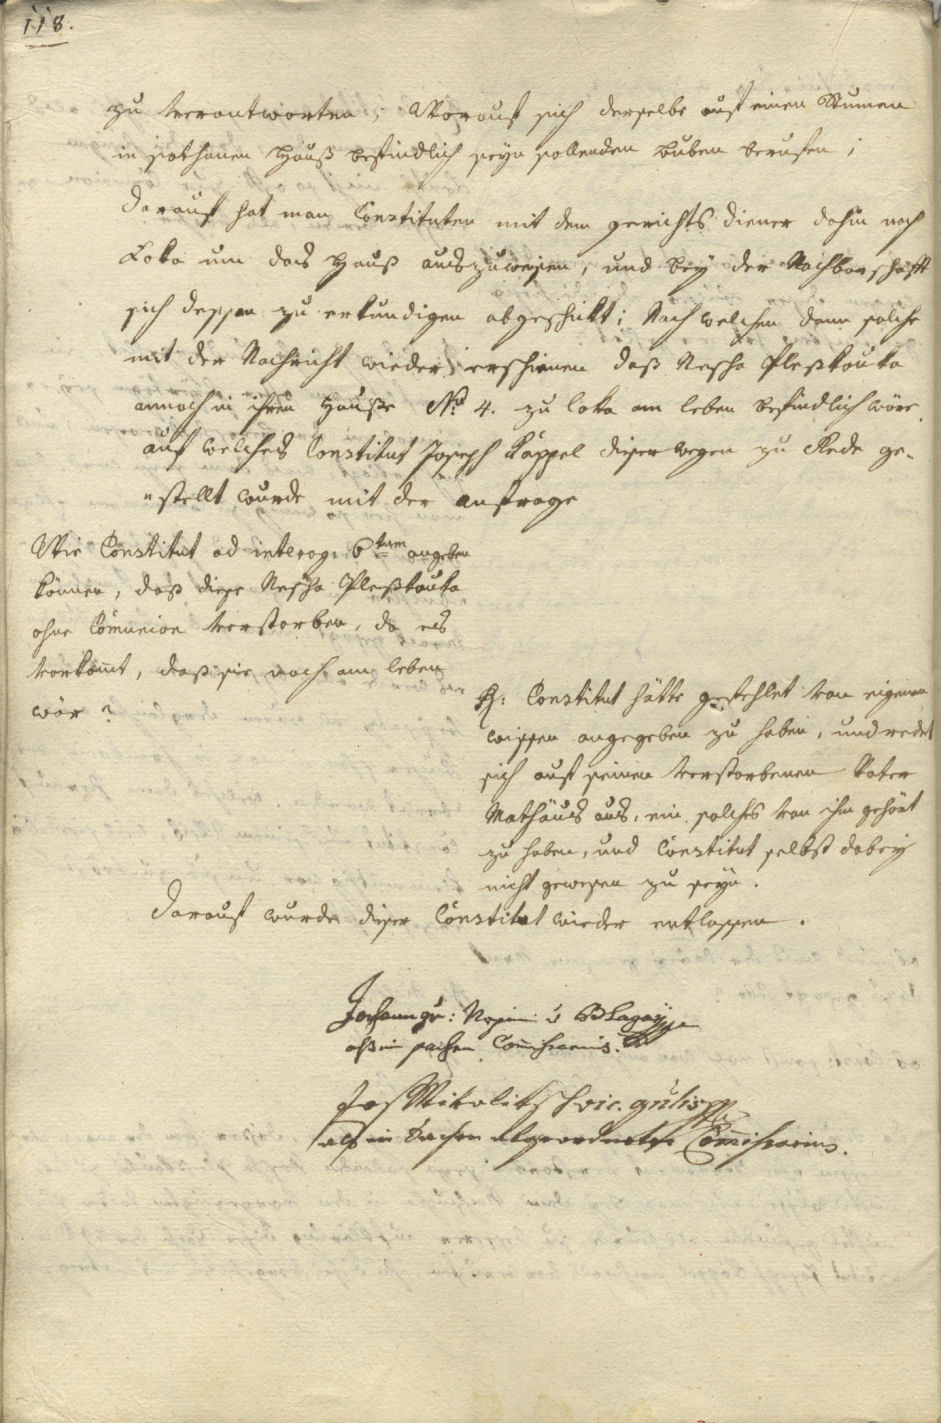 118.
zu verantworten; Worauf sich derselbe auf einen Stumen
in sothanen Hauß befindlich seyn sollenden Buben berufen;
Darauf hat man Constituten mit dem gerichts diener dahin nach
Loka um das Hauß auszuweisen, und bey der Nachbarschafft
sich dessen zu erkundigen abgeschikt; Nach welchen dann solche
mit der Nachricht wieder erschienen daß Nescha Pleßkouka
annoch in ihren Hauße No 4. zu loka am leben befindlich wäre,
auf welches Constitut Joseph Kappel dieser wegen zu Rede ge-
stellt wurde mit der anfrage
Wie Constitut ad interog: 6tum angeben
können, daß diese Nescha Pleßkouka
ohne Comunion verstorben, da es
vorkomt, daß sie noch am leben
wär?
R: Constitut hätte gefehlet von eigenen
wissen angegeben zu haben, und redet
sich auf seinen verstorbenen Vater
Mathäus aus, ein solches von ihm gehört
zu haben, und Constitut selbst dabey
nicht gewesen zu seyn.
Darauf wurde dieser Constitut wieder entlassen.
Johann
als in sachen Comissarius.
Jos Mikolitsch
als in Sachen abgeordneter Comissarius.